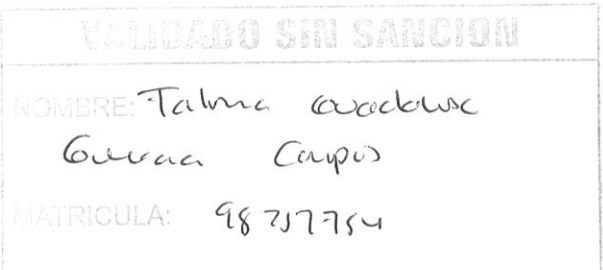 VALIDADO SIN SANCION
NOMBRE: Talma Guadalupe
Guerra Campos
MATRICULA: 98257754